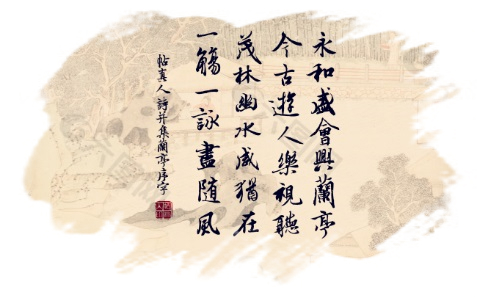 永和盛會興蘭亭
今古遊人樂視聽
茂林幽水咸猶在
一觴一詠盡随風
帖真人詩并集蘭亭序字